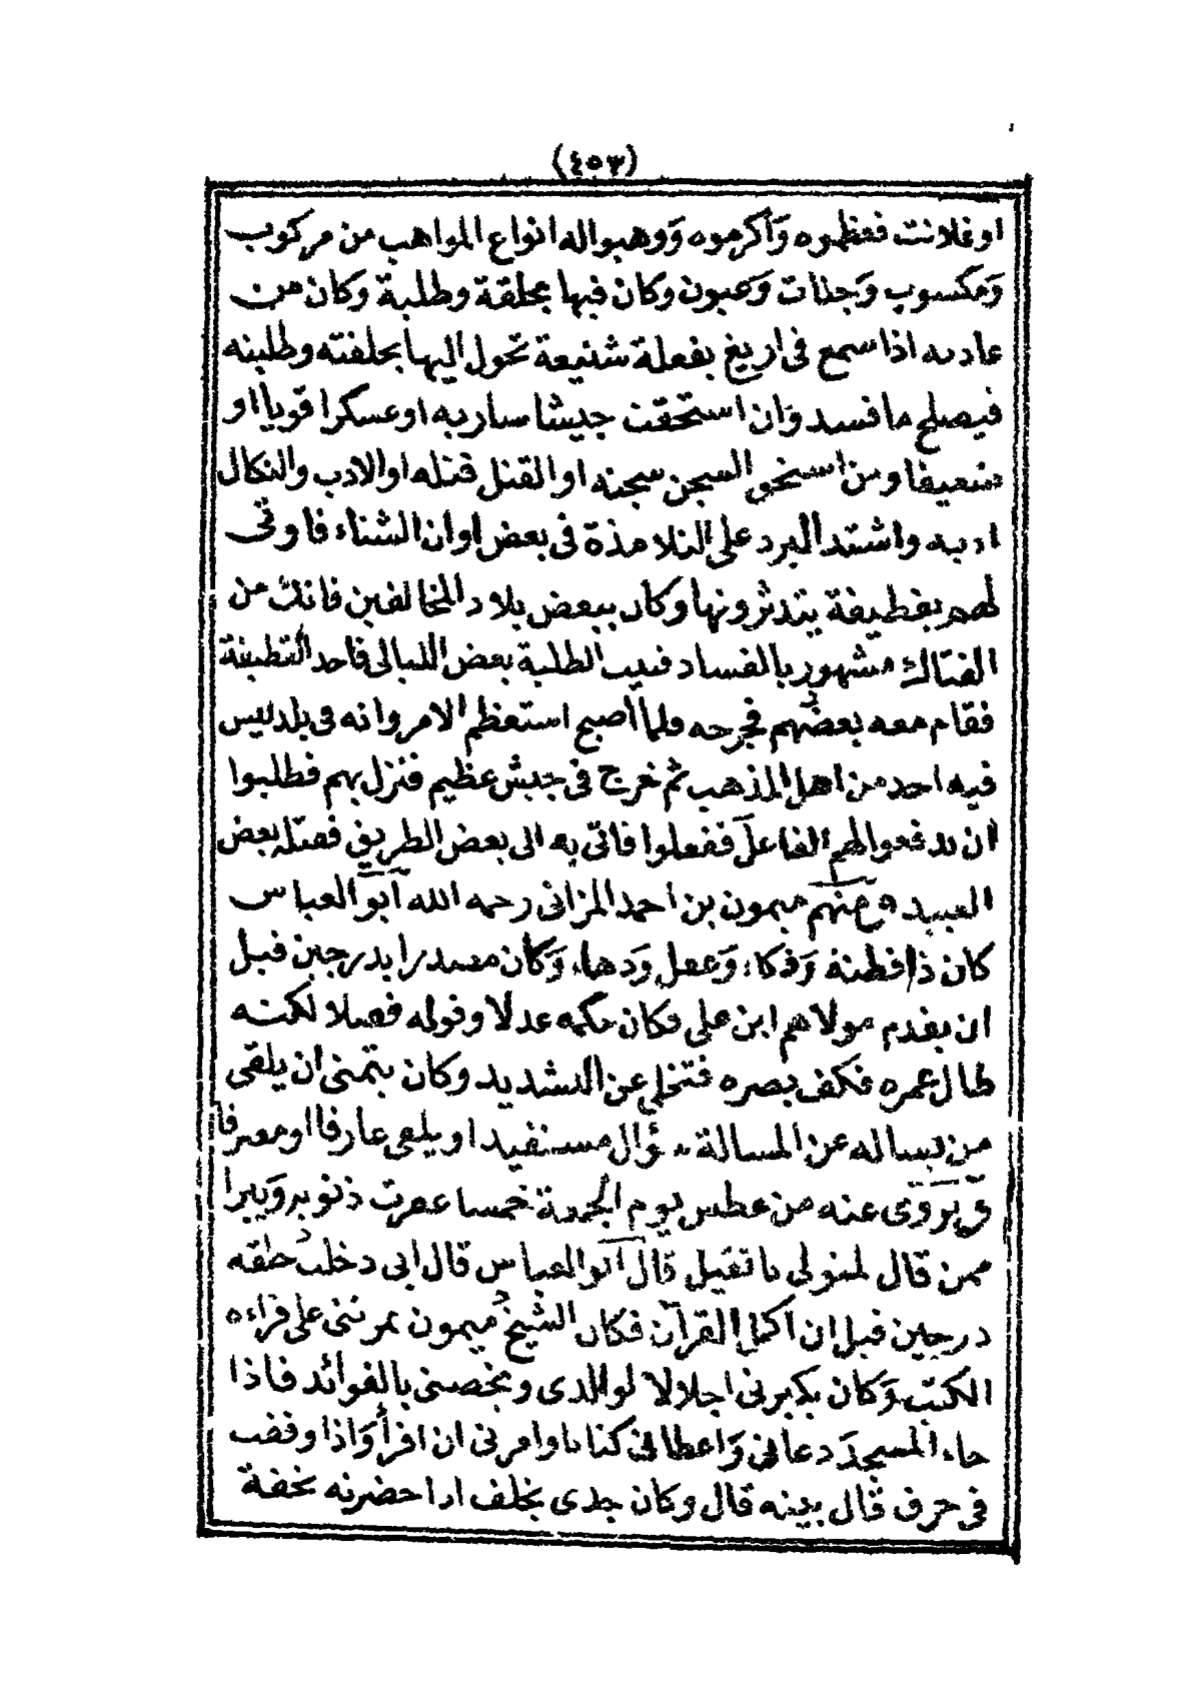 (٤٥٣)
او غلانت فعظموه وَاكرموه وَوهبوا له انواع المواهب من مركوب
وَمكسوب وَجنات وَعيون وكان فيها بحلقة وطلبة وكان من
عادته اذا سمع فى اريغ بفعلة شنيعة تحول اليها بحلقته وطلبته
فيصلح ما فسد وَان استحقت جيشا سار به او عسكرا قويا او
ضعيفا ومن استحق السجن سجنه او القتل قتله او الادب والنكال
ادبه واشتد البرد على التلامذة فى بعض اوان الشتاء فاوتى
لهم بقطيفة يتدثرونها وكان ببعض بلاد المخالفين فاتك من
الفتاك مشهور بالفساد فبيت الطلبة بعض الليالى فاخذ القطيفة
فقام معه بعضهم فجرحه فلما اصبح استعظم الامر وانه فى بلد ليس
فيه احد من اهل المذهب ثم خرج فى جيش عظيم فنزل بهم فطلبوا
ان يدفعوا لهم الفاعل ففعلوا فاتى به الى بعض الطريق فقتله بعض
العبيد ومنهم ميمون بن احمد المزاتى رحمه الله ابو العباس
كان ذا فطنة وَذكاء وَعقل وَدهاء وَكان مصدرا بدرجين قبل
ان يقدم مولاهم ابن على فكان حكمه عدلا وقوله فصلا لكنه
طال عمره فكف بصره فتخلى عن التشديد وكان يتمنى ان يلقى
من يساله عن المسالة سؤال مستفيد او يلقى عارفا او معرفا
وَيروى عنه من عطس يوم الجمعة خمسا غفرت ذنوبه وَيبرا
ممن قال لمتولى يا ثقيل قال ابو العباس قال ابى دخلت حلقه
درجين قبل ان اكمل القرآن فكان الشيخ ميمون يمرننى على قراءة
الكتب وَكان يكبرنى اجلالا لوالدى ويخصنى بالفوائد فاذا
جاء المسجد دعانى وَاعطانى كتابا وامرنى ان اقرأ وَاذا وقفت
فى حرف قال بينه قال وكان جدى يخلف اذا حضرته تحفة